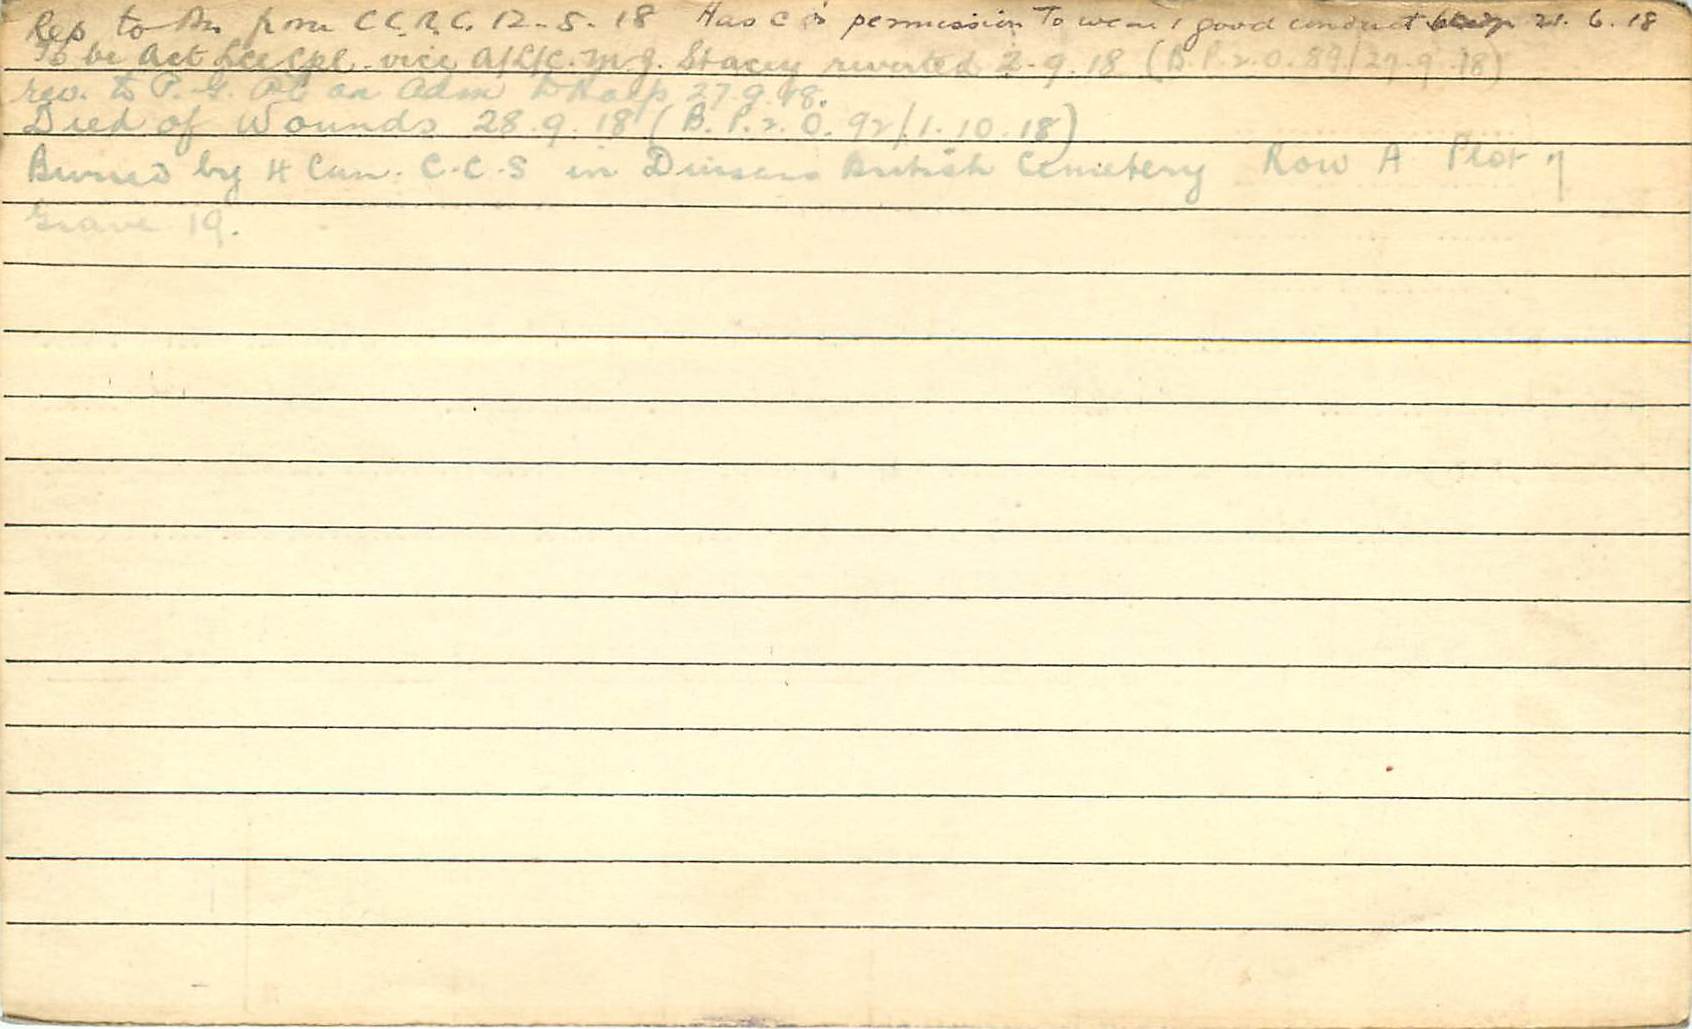 Rep to Bn from C.C.R.C. 12-5-18 Has C O's permission to wear 1 good conduct 21.6.18
To be Act Lce Cpl. vice A/L/C. M.J. Stacey reverted 2.9.18 (B.P.2.O. 89/27.9.18)
rev. to P. G. Pte on Adm to Hosp 27.9.18.
Died of Wounds 28.9.18 (B.P.2.O. 92/1.10.18)
Buried by 4 Can. C.C.S in British Cemetery Row A Plot
Grave 19.